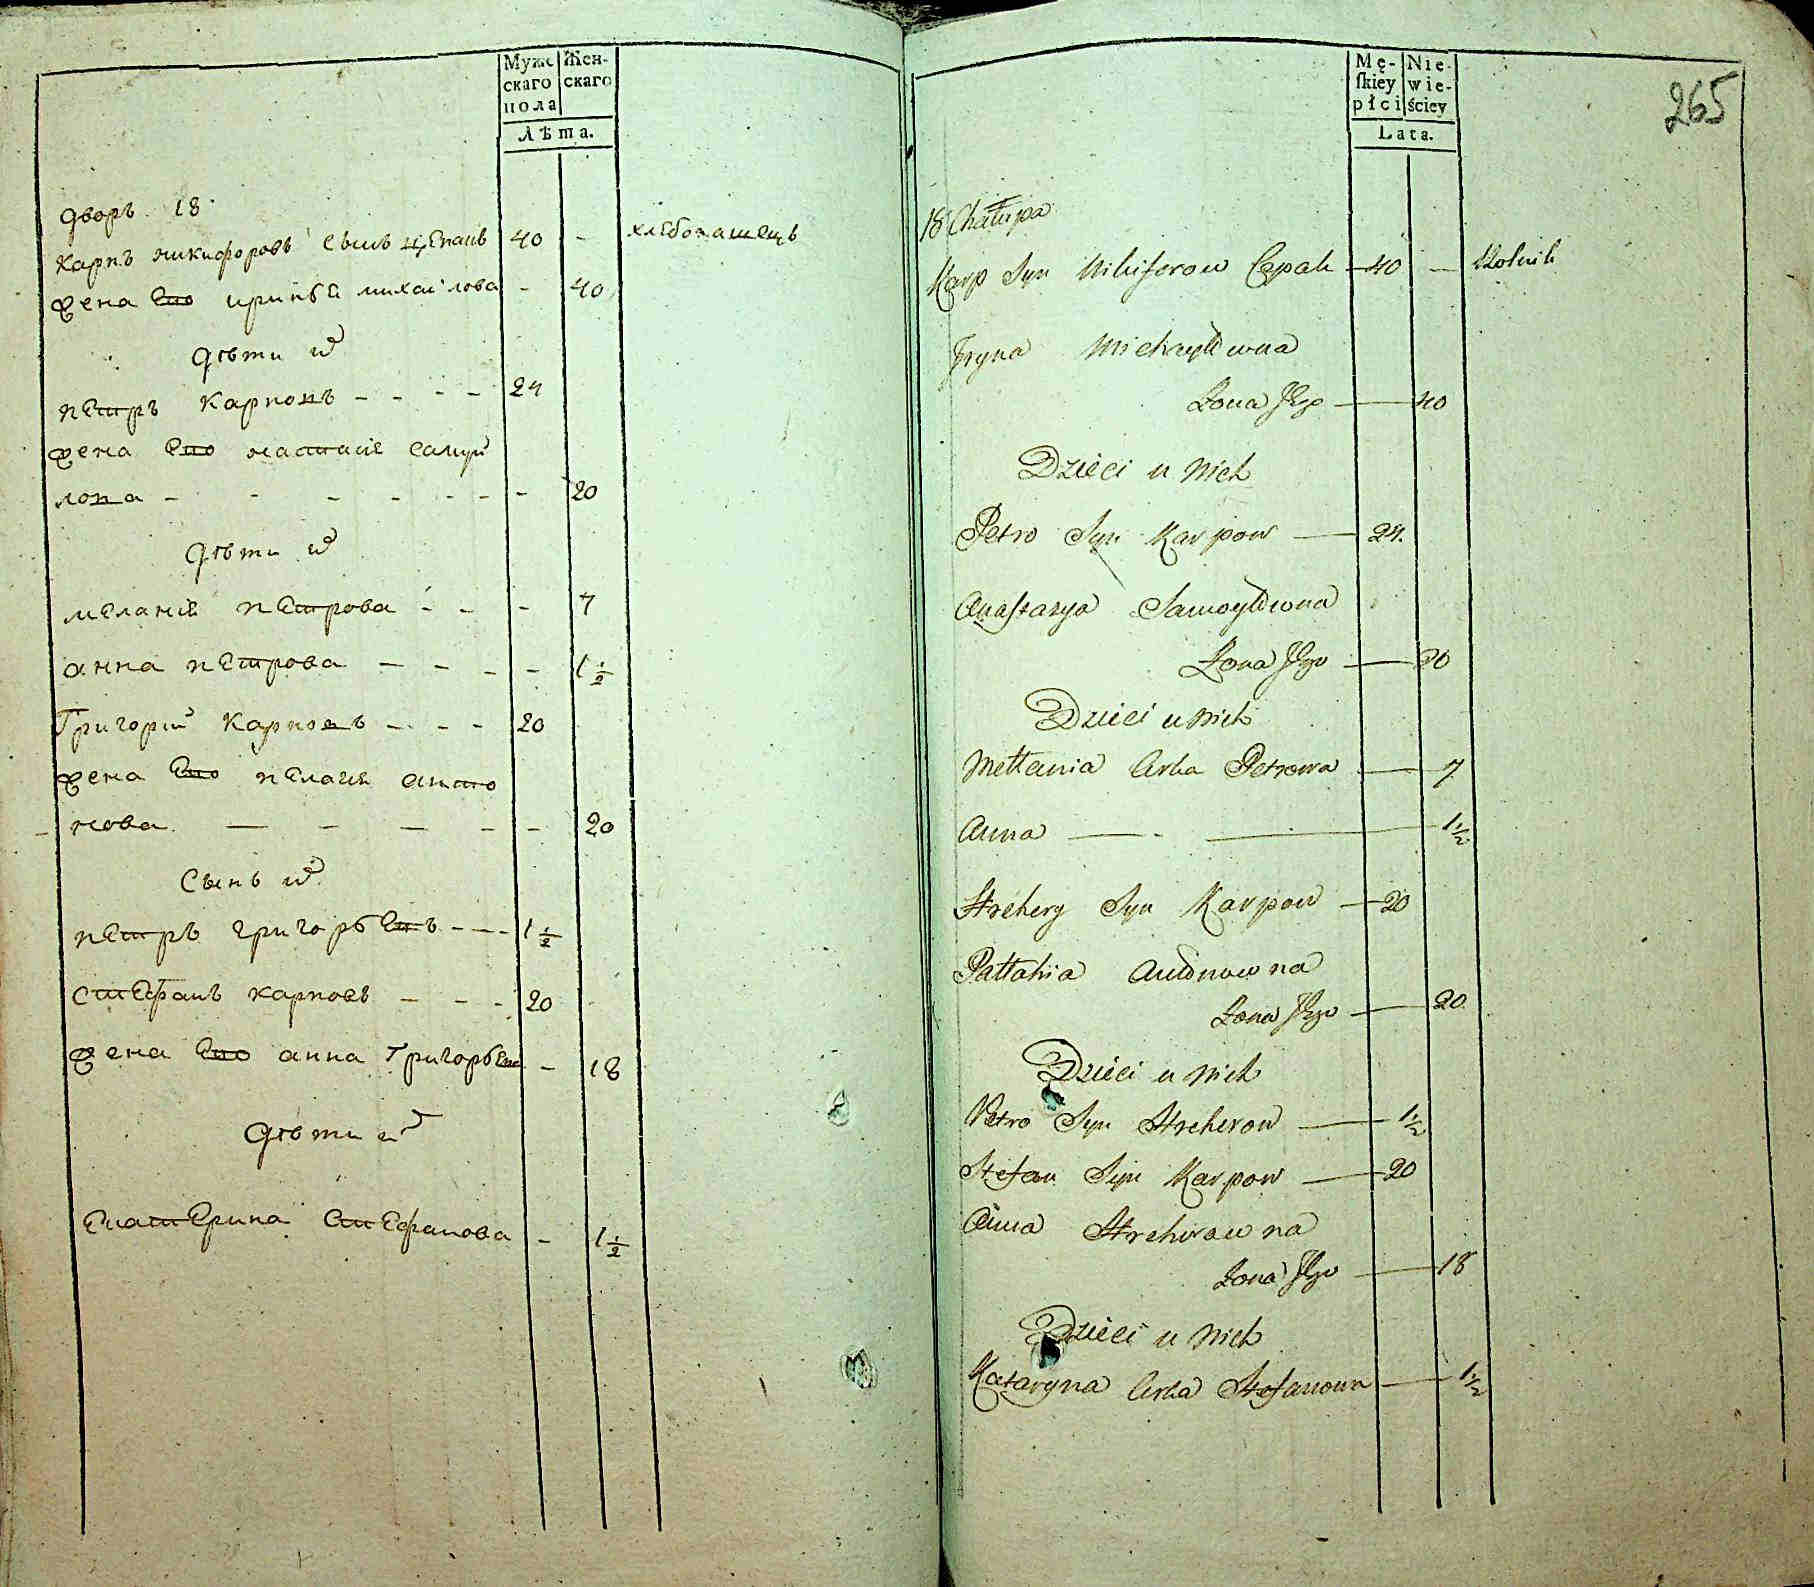 Муже
скаго
пола
Жен-
скаго
Лѣта.
дворъ 18
Карпъ никифоровъ сынъ цепакъ 40 - хлебопашецъ
жена Его ирина михаилова - 40
дѣти их
петръ карповъ - - - - 24
жена Его настасiя самуи
лова - - - - - - - 20
дѣти их
меланiя петрова - - - 7
анна петрова - - - - 1 1/2
Григорiй Карповъ - - - 20
жена Его пелагiя анто
нова - - - - - 20
Сынъ их
петръ григорьевъ - - - 1 1/2
стефанъ карповъ - - - 20
жена Его анна Григорьева - 18
дѣти их
Екатерина Стефанова - 1 1/2
Mę-
ſkiey
płci
Nie-
wie-
ściey
Lata.
265
18 Chałupa
Karp Syn Nikiforow Cepak - 40 - Rolnik
Jryna Michayłowna
Żona Jego - 40
Dzieci u Nich
Petro Syn Karpow - 24.
Anastazya Samoyłowna
Żona Jego - 20
Dzieci u Nich
Mełłania Corka Petrowa - 7
Anna - - 1 1/2
Hrehery Syn Karpow - 20
Pałłahia Antonowna
Żona Jego - 20
Dzieci u Nich
Petro Syn Hrehorow - 1 1/2
Stefan Syn Karpow - 20
Anna Hrehorowna
Żona Jego - 18
Dzieci u Nich
Kataryna Corka Stefanowa - 1 1/2